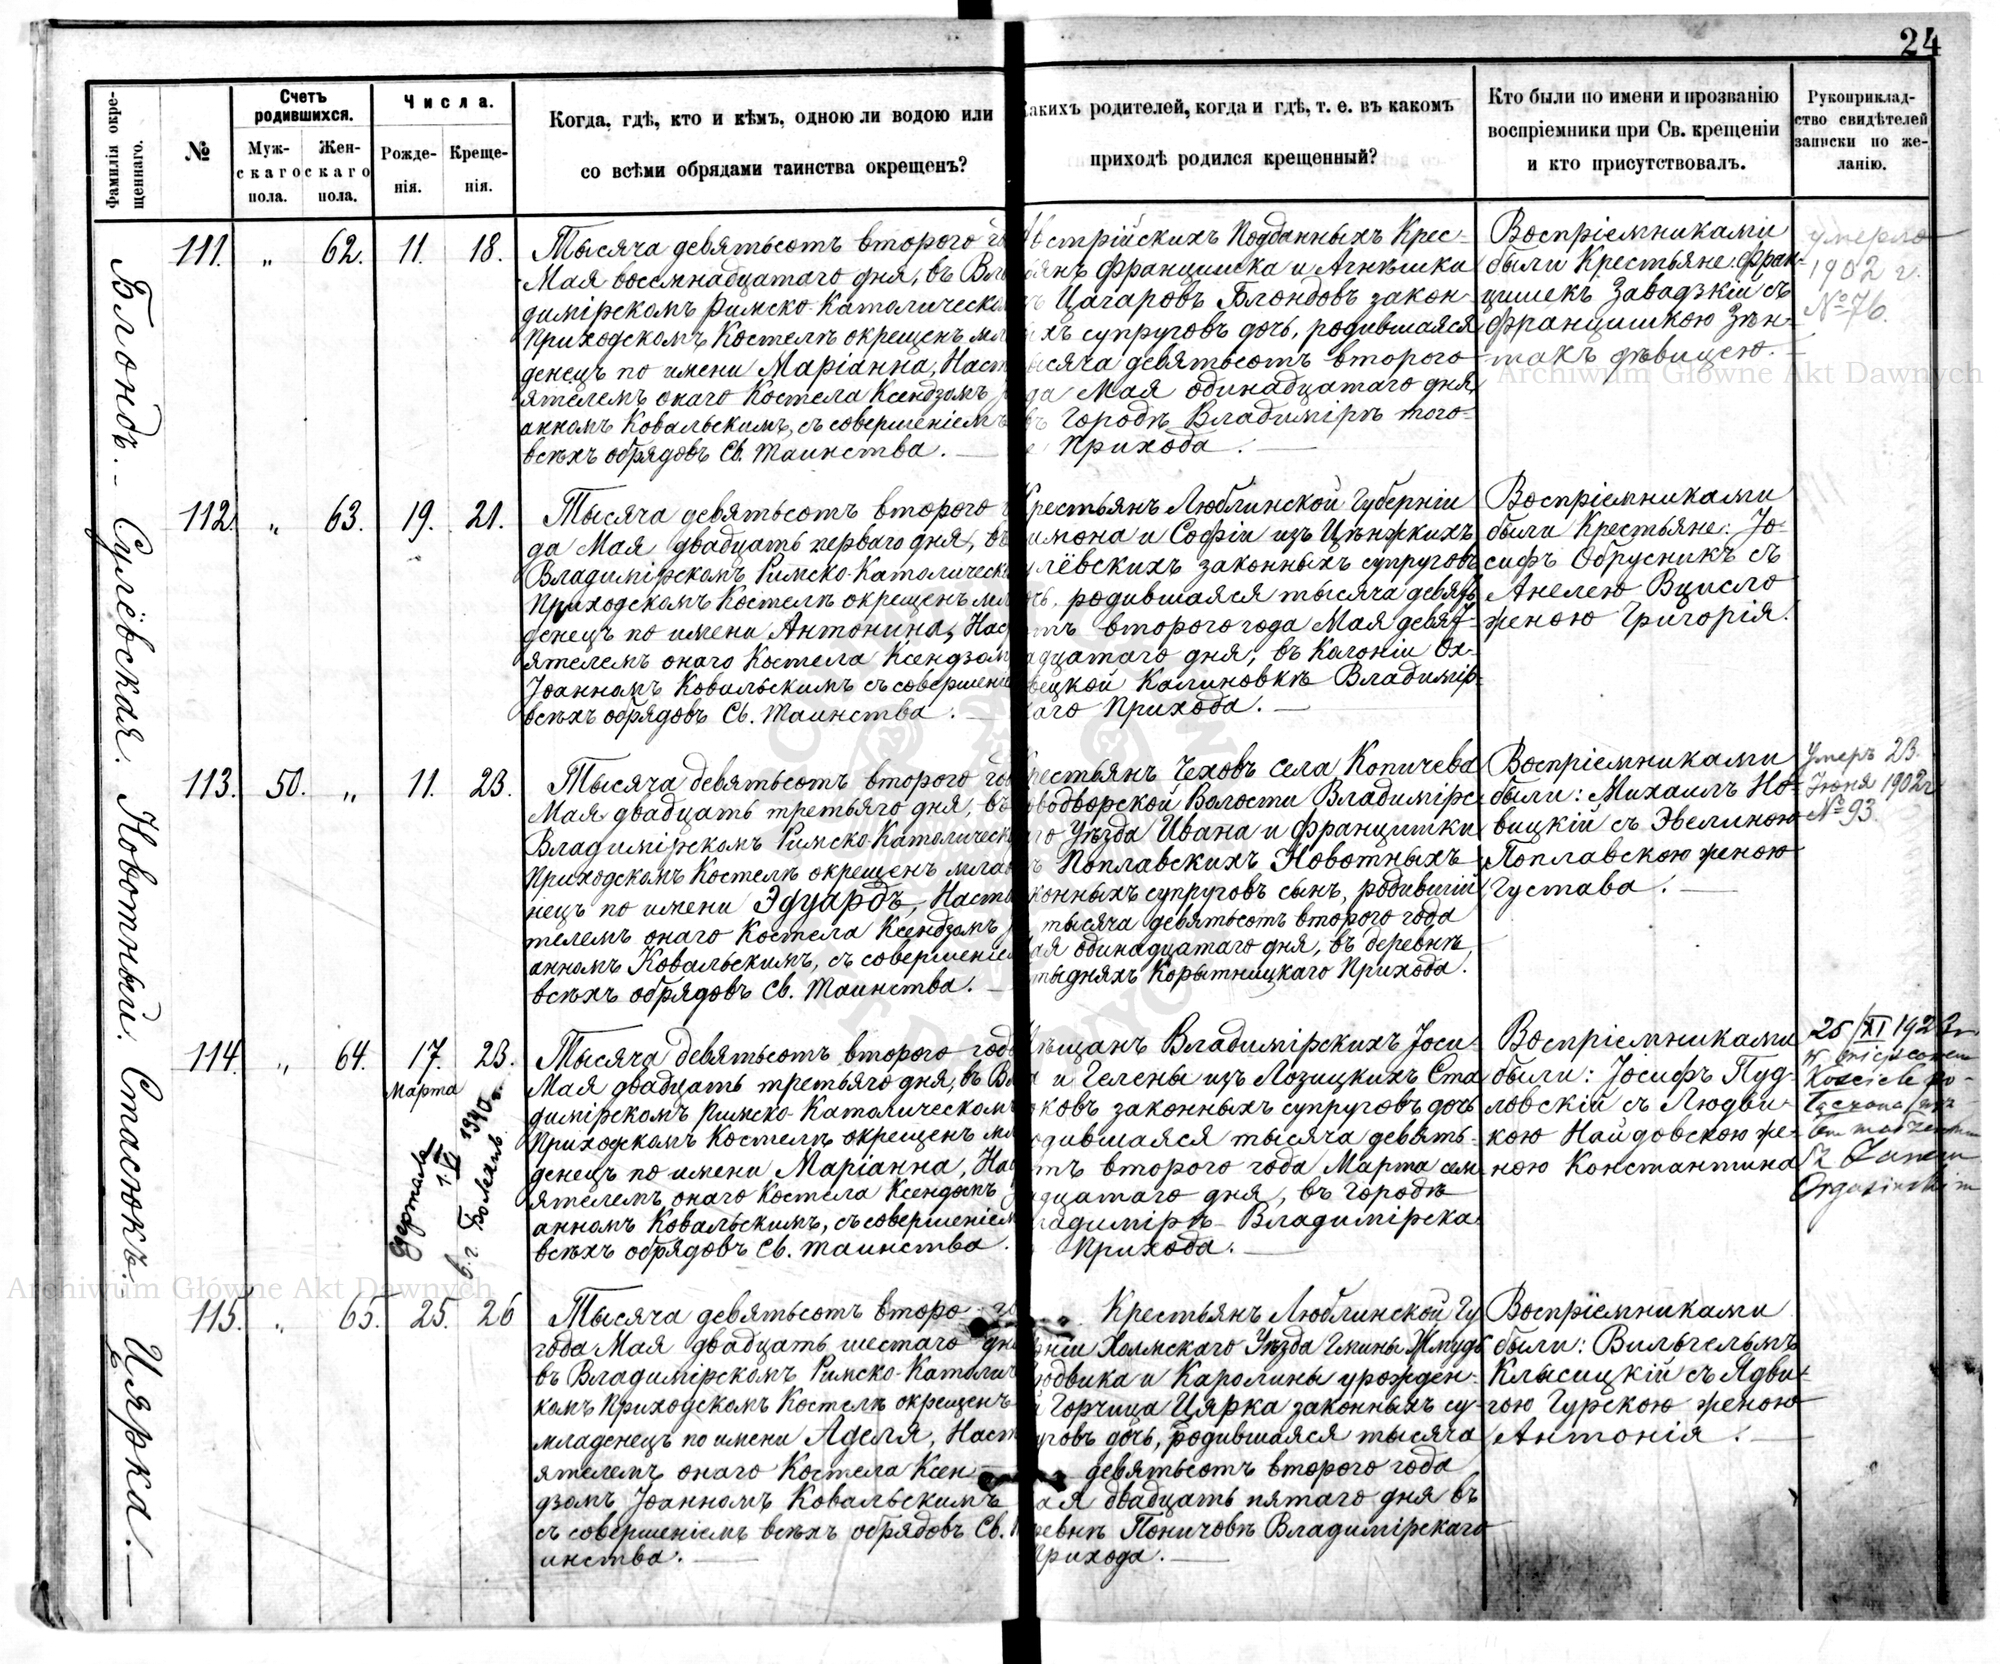 24
Фамилія окре-
щеннаго.
№
Счетъ
родившихся.
Муж-
скаго
пола.
Жен-
скаго
пола.
Числа.
Рожде-
нія.
Креще-
нія.
Когда, гдѣ, кто и кѣмъ, одною ли водою или
со всѣми обрядами таинства окрещенъ?
Какихъ родителей, когда и гдѣ, т. е. въ какомъ
приходѣ родился крещенный?
Кто были по имени и прозванію
воспріемники при Св. крещеніи
и кто присутствовалъ.
Рукоприклад-
ство свидѣтелей
записки по же-
ланію.
Блондъ.
111. „ 62. 11. 18.
Тысяча девятьсотъ второго го
Мая восемнадцатаго дня, въ Вла
димірскомъ Римско-Католическо
Приходскомъ Костелѣ окрещенъ мла
денецъ по имени Маріанна, Наст
ятелемъ онаго Костела Ксендзомъ
анномъ Ковальскимъ, съ совершеніемъ
всѣхъ обрядовъ Св. Таинства.
Австрійскихъ Подданныхъ Крес-
янъ Францишка и Агнѣшки
Цагаровъ Блондовъ закон-
хъ супруговъ дочь, родившаяся
тысяча девятьсотъ второго
да Мая одинадцатаго дня,
въ городѣ Владимірѣ того-
Прихода.
Воспріемниками
были Крестьяне: Фран-
цишекъ Завадзкій съ
Францишкою Зѣн-
такъ дѣвицею.
умерла
1902 г.
№ 76.
Сулёвская.
112. „ 63. 19. 21.
Тысяча девятьсотъ второго г
да Мая двадцать перваго дня, въ
Владимірскомъ Римско-Католическо
Приходскомъ Костелѣ окрещенъ мла
денецъ по имени Антонина, Нас
ятелемъ онаго Костела Ксендзом
Іоанномъ Ковальскимъ съ совершеніе
всѣхъ обрядовъ Св. Таинства.
Крестьянъ Люблинской Губерніи
имона и Софіи изъ Цѣнжкихъ
улёвскихъ законныхъ супруговъ
чь, родившаяся тысяча девять
отъ второго года Мая девят-
адцатаго дня, въ Колоніи Ох-
вецкой Калиновкѣ Владимір-
каго Прихода.
Воспріемниками
были Крестьяне: Іо-
сифъ Обрусникъ съ
Анелею Вцисло
женою Григорія.
Новотный.
113. 50. „ 11. 23.
Тысяча девятьсотъ второго го
Мая двадцать третьяго дня, въ
Владимірскомъ Римско-Католическ
Приходскомъ Костелѣ окрещенъ млад
нецъ по имени Эдуардъ, Насто
телемъ онаго Костела Ксендзомъ
анномъ Ковальскимъ, съ совершеніе
всѣхъ обрядовъ Св. Таинства.
рестьянъ Чеховъ села Копичева
оводворской Волости Владимірс-
го Уѣзда Ивана и Францишки
Поплавскихъ Новотныхъ
конныхъ супруговъ сынъ, родившій
тысяча девятьсотъ второго года
ая одинадцатаго дня, въ деревнѣ
тыдняхъ Корытницкаго Прихода.
Воспріемниками
были: Михаилъ Но-
вицкій съ Эвелиною
Поплавскою женою
Густава.
Умеръ 23.
Іюня 1902 г.
№ 93.
Стасюкъ.
114. „ 64. 17. 23.
Марта
Тысяча девятьсотъ второго года
Мая двадцать третьяго дня, въ Вл
димірскомъ Римско-Католическомъ
Приходскомъ Костелѣ окрещенъ мла
денецъ по имени Маріанна, Нас
ятелемъ онаго Костела Ксендзомъ
анномъ Ковальскимъ, съ совершеніем
всѣхъ обрядовъ Св. Таинства.
ѣщанъ Владимірскихъ Іоси-
и Гелены изъ Лозицкихъ Ста
ковъ законныхъ супруговъ дочь
одившаяся тысяча девять-
отъ второго года Марта сем
адцатаго дня, въ городѣ
ладимірѣ Владимірска
Прихода.
Воспріемниками
были: Іосифъ Пуд-
ловскій съ Людви-
кою Найдовскою же-
ною Константина
Kościele
Умерла
1.VI 1940 г.
Цярка.
115. „ 65. 25. 26
Тысяча девятьсотъ второ- го
года Мая двадцать шестаго дня
въ Владимірскомъ Римско-Католич
комъ Приходскомъ Костелѣ окрещенъ
младенецъ по имени Аделя, Наст
ятелемъ онаго Костела Ксен-
дзомъ Іоанномъ Ковальскимъ
съ совершеніемъ всѣхъ обрядовъ Св.
инства.
Крестьянъ Люблинской Гу
рніи Холмскаго Уѣзда Гмины Жмудь
юдвика и Каролины урожден-
Горчица Цярка законныхъ су-
уговъ дочь, родившаяся тысяча
девятьсотъ второго года
ая двадцать пятаго дня въ
ревнѣ Поничовѣ Владимірскаго
Прихода.
Воспріемниками
были: Вильгельмъ
Клысицкій съ Ядви-
гою Гурскою женою
Антонія.
Archiwum Główne Akt Dawnych
Archiwum Główne Akt Dawnych